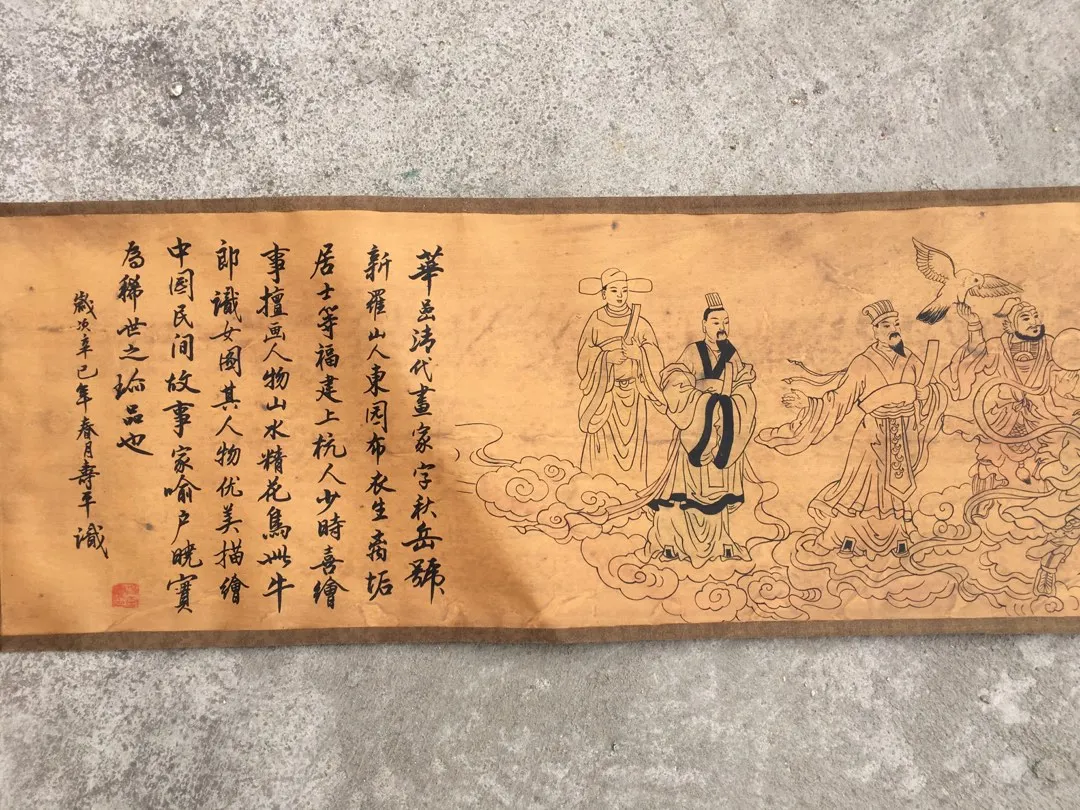 華嵒清代畫家字秋岳號
新羅山人東园布衣生离垢
居士等福建上杭人少時喜繪
事擅画人物山水精花鳥此牛
郎識女圖其人物优美描繪
中国民间故事家喻户曉實
為稀世之珎品也
歲次辛已年春月壽平識